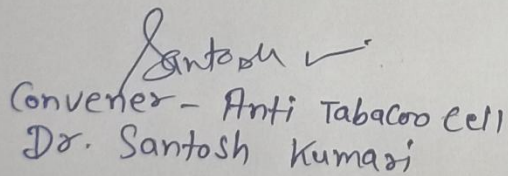 Santosh
Convener - Anti Tabacoo Cell
Dr. Santosh Kumari